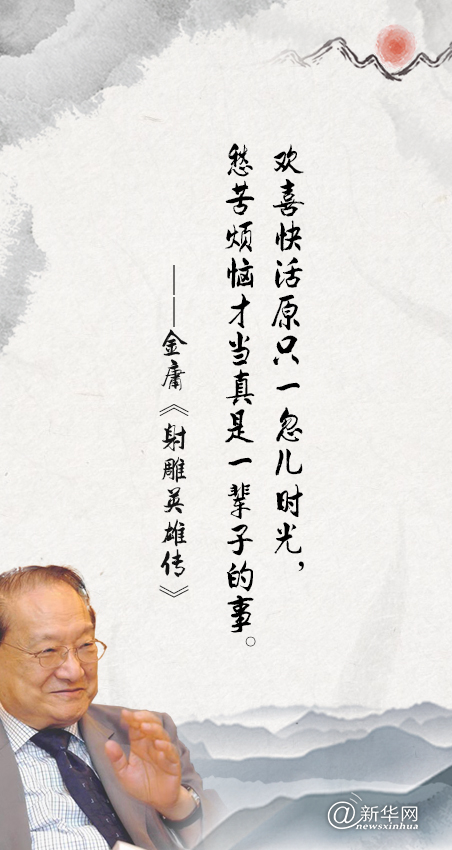 欢喜快活原只一忽儿时光，
愁苦烦恼才当真是一辈子的事。
——金庸《射雕英雄传》
@新华网
newsxinhua